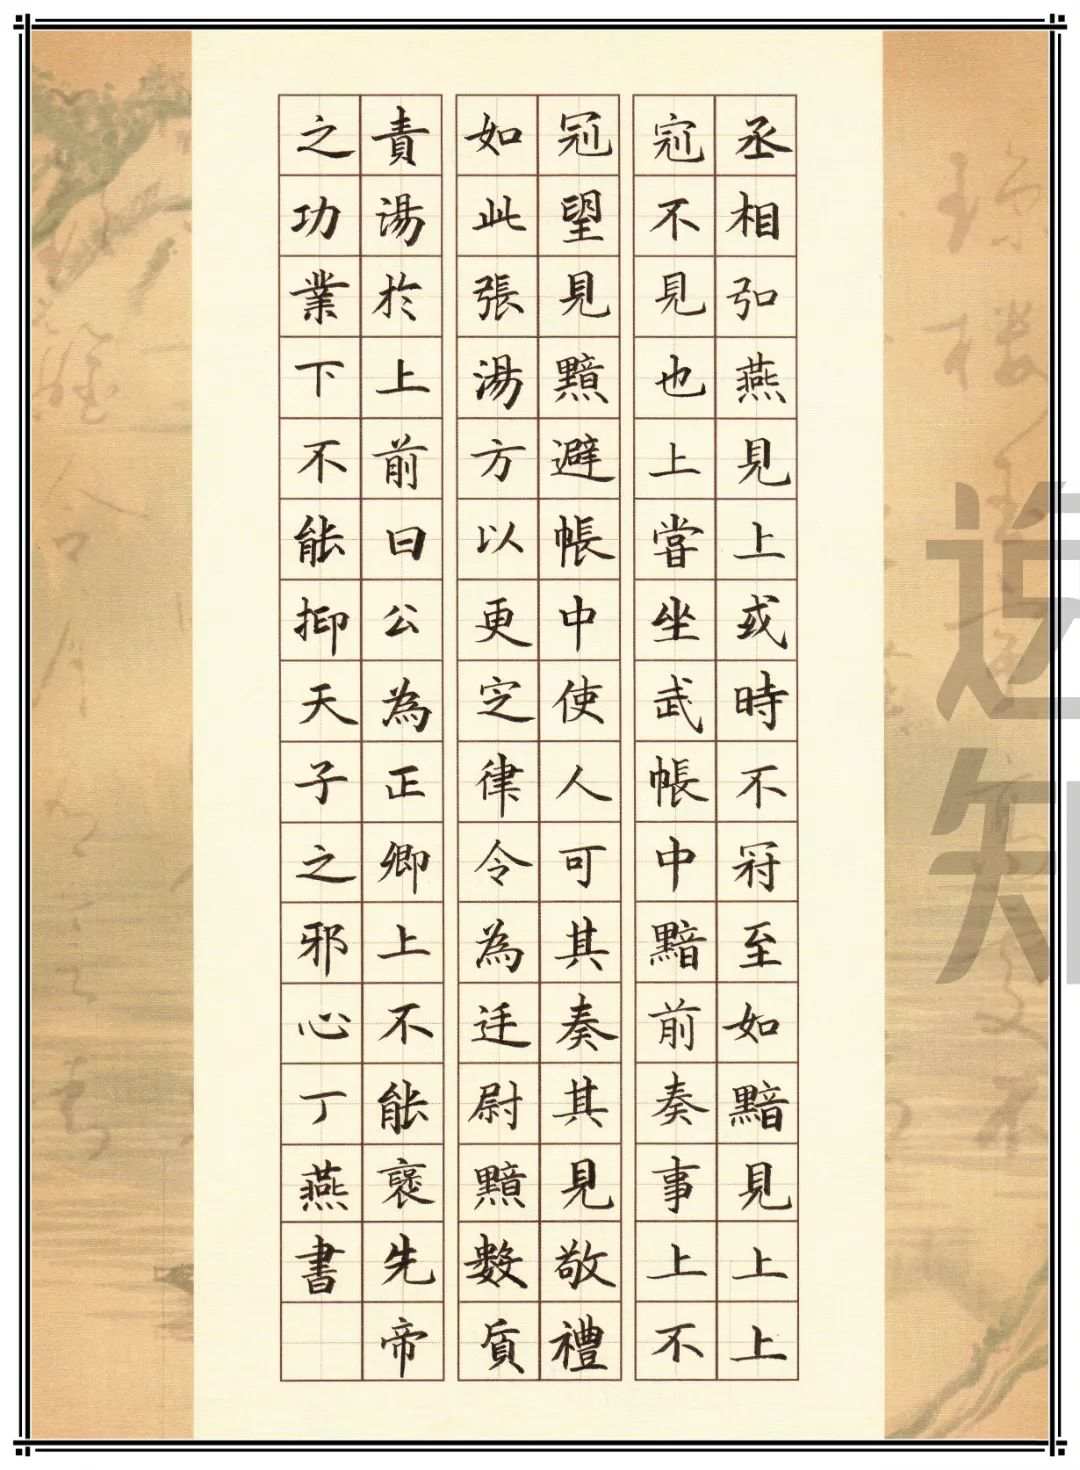 丞相弘燕見上或時不冠至如黯見上上
冠不見也上嘗坐武帳中黯前奏事上不
冠望見黯避帳中使人可其奏其見敬禮
如此張湯方以更定律令為廷尉黯數質
責湯於上前曰公為正卿上不能褒先帝
之功業下不能抑天子之邪心丁燕書